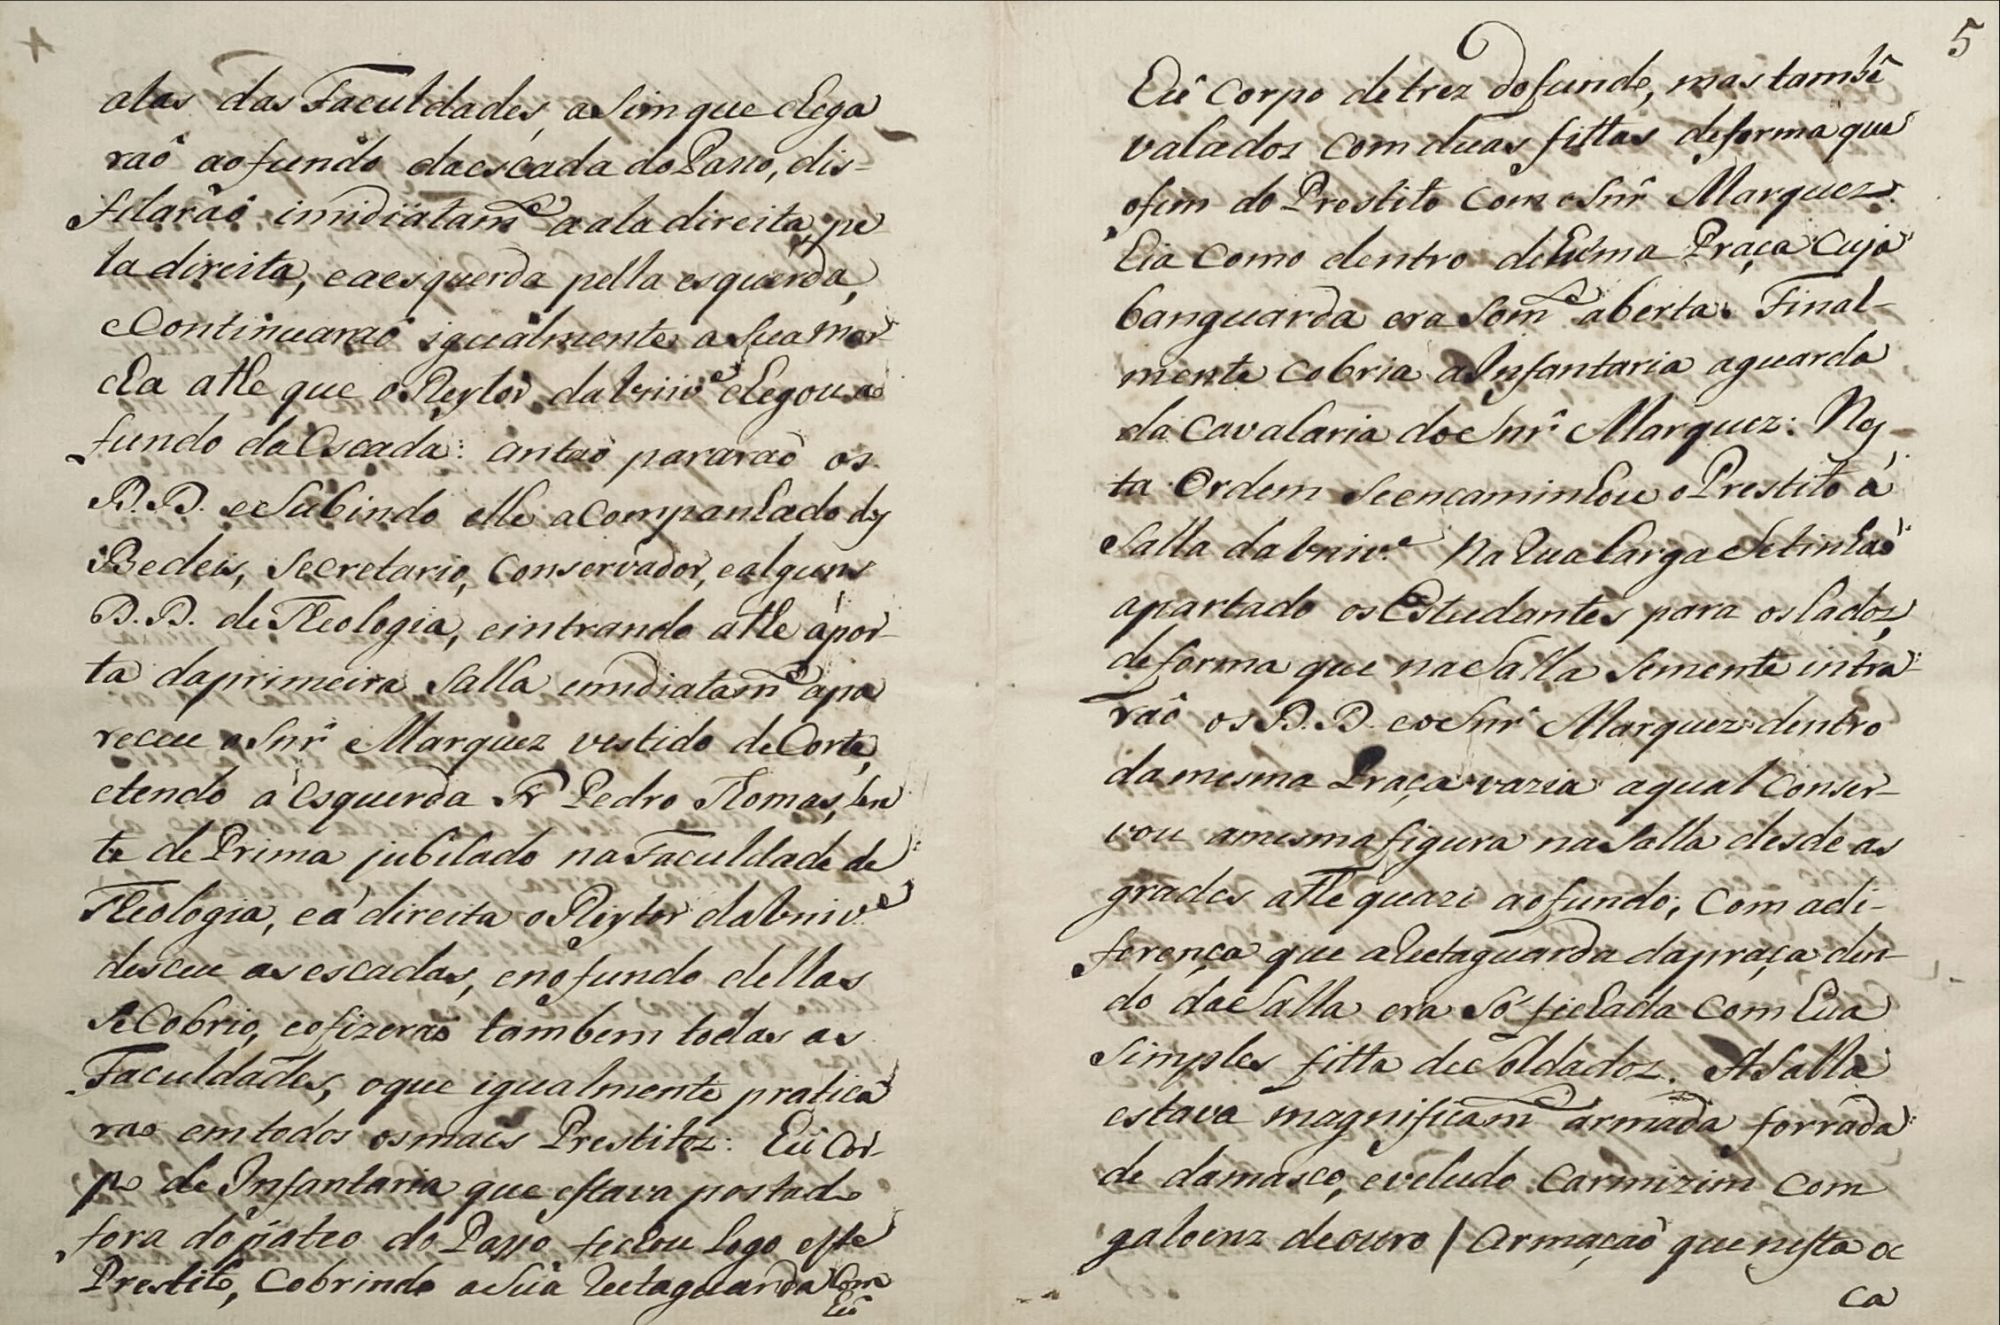 alas das Faculdades, asim que chega
raõ ao fundo da escada do Passo, dis-
filaraõ imidiatam.e a ala direita, pe
la direita, e a esquerda pella esquerda,
e Continuaraõ igualmente a sua mar
cha athe que o Reytor da Univ.e chegou ao
fundo da Escada: antaõ pararaõ os
D.D. e Subindo elle acompanhado dos
Bedeis, Secretario, Conservador, e alguns
D.D. de Theologia, e intrando athe á por-
ta da primeira Salla imidiatam.e apa
receu o Snr̃ Marquez vestido de Corte,
e tendo á Esquerda Fr Pedro Thomas, Len
te de Prima jubilado na Faculdade de
Theologia, e á direita o Reytor da Univ.e
desceu as escadas, e no fundo dellas
se Cobrio, e o fizeraõ tambem todas as
Faculdades, o que igualmente pratica
rao em todos os mais Prestitoz: Hũ Cor-
po de Infantaria que estava postado
fora do páteo do Passo fechou logo este
Prestito, Cobrindo a Sua Rectaguarda Com
hũ
4
5
Hũ Corpo de trez do funde, mas tambẽ
valados Com duas fittas de forma que
o fim do Prestito Com o Snr̃ Marquez
hia Como dentro de huma Praça Cuja
banguarda era Som.e aberta. Final-
mente Cobria a Infantaria a guarda
da Cavalaria do Snr̃ Marquez: Nes-
ta Ordem se encaminhou o Prestito á
Salla da Univ.e Na Rua Larga se tinhaõ
apartado os Estudantes para os ladoz,
de forma que na Salla Somente intra
raõ os D.D. e o Snr̃ Marquez dentro
da mesma Praça vazia a qual Conser-
vou a mesma figura na Salla desde as
grades athe quazi ao fundo, Com a di-
ferença que a Rectaguarda da praça den-
do da Salla era Só fichada Com hũa
Simples fitta de Soldadoz. A Salla
estava magnificam.e armada forrada
de damasco, e veludo Carmizim Com
galoenz de ouro / Armaçaõ que nesta o
ca